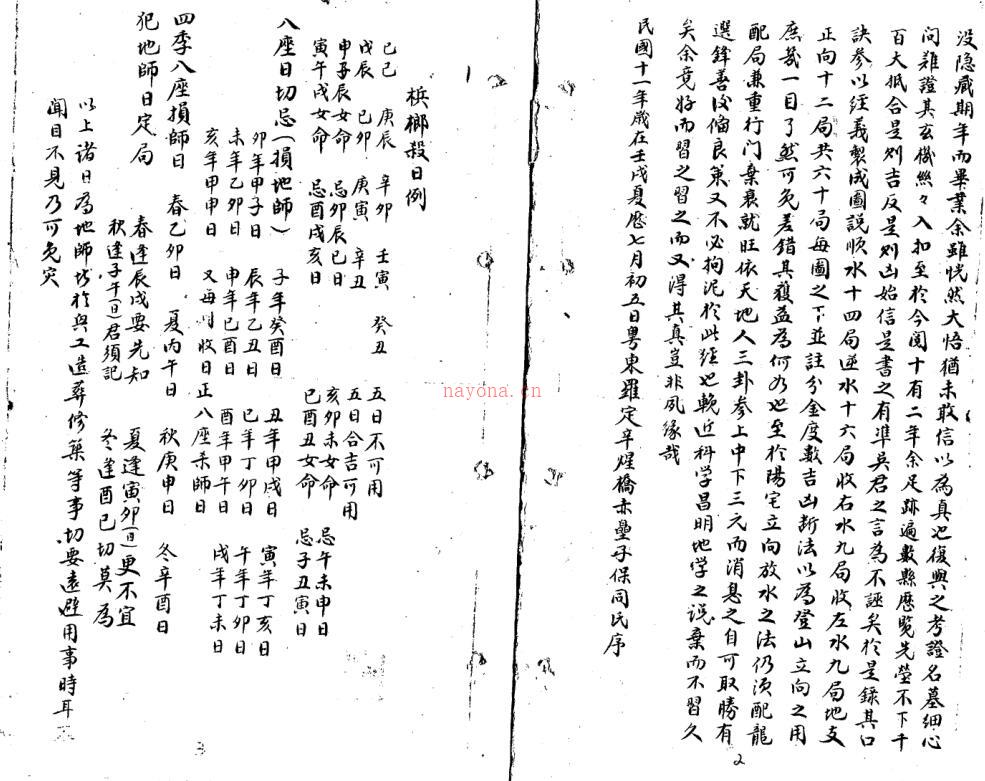 没隐藏期年而畢業余雖恍然大悟猶未敢信以為真也復與之考證名墓細心
问难證其玄機絲々入扣至於今閲十有二年余足跡遍數縣歷覽先塋不下千
百大抵合是则吉反是则凶始信是書之有凖吳君之言為不誣矣於是錄其口
訣参以经義製成圖説顺水十四局逆水十六局收右水九局收左水九局地支
正向十二局共六十局每圖之下並註分金度數吉凶断法以為登山立向之用
庶㡬一目了然可免差錯其獲益為何如也至於陽宅立向放水之法仍须配龍
配局兼重行门棄衰就旺依天地人三卦参上中下三元而消息之自可取勝有
選鋒善後偹良策又不必拘泥於此経也輓近科学昌明地学之説棄而不習久
矣余竟好而習之習之而又淂其真豈非夙缘哉
民國十一年歲在壬戌夏歷七月初五日粤東羅定辛煋橋赤壘子保同民序
2
梹榔殺日例
己巳 庚辰 辛卯 壬寅 癸丑
戊辰 己卯 庚寅 辛丑
五日不可用
五日合吉可用
申子辰女命 忌卯辰巳日
亥卯未女命 忌午未申日
寅午戌女命 忌酉戌亥日
巳酉丑女命 忌子丑寅日
八座日切忌(損地師)
子年癸酉日 丑年甲戌日 寅年丁亥日
卯年甲子日 辰年乙丑日 巳年丁卯日 午年丁卯日
未年乙卯日 申年巳酉日 酉年甲午日 戌年丁未日
亥年甲申日 又每 收日正八座杀師日
四季八座損師日 春乙卯日 夏丙午日 秋庚申日 冬辛酉日
犯地師日定局
春逢辰戌要先知 夏逢寅卯(日)更不宜
秋逢子午(日)君须記 冬逢酉巳切莫為
以上诸日為地師 於與工造葬修築等事切要遠避用事時耳
闻目不見乃可免灾
3
nayona.cn